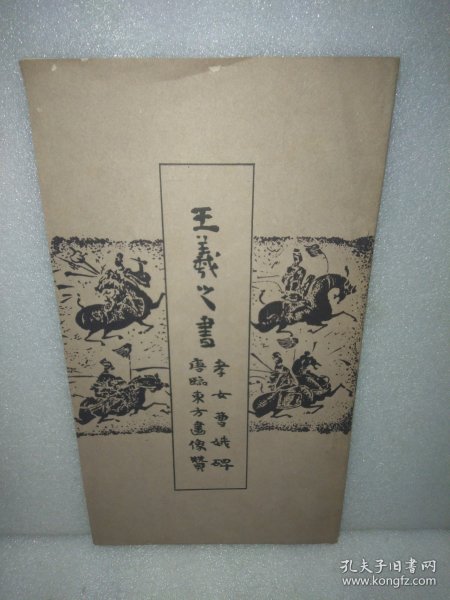 王羲之書
孝女曹娥碑
唐臨東方畫像贊
孔夫子旧书网
www.kongfz.com